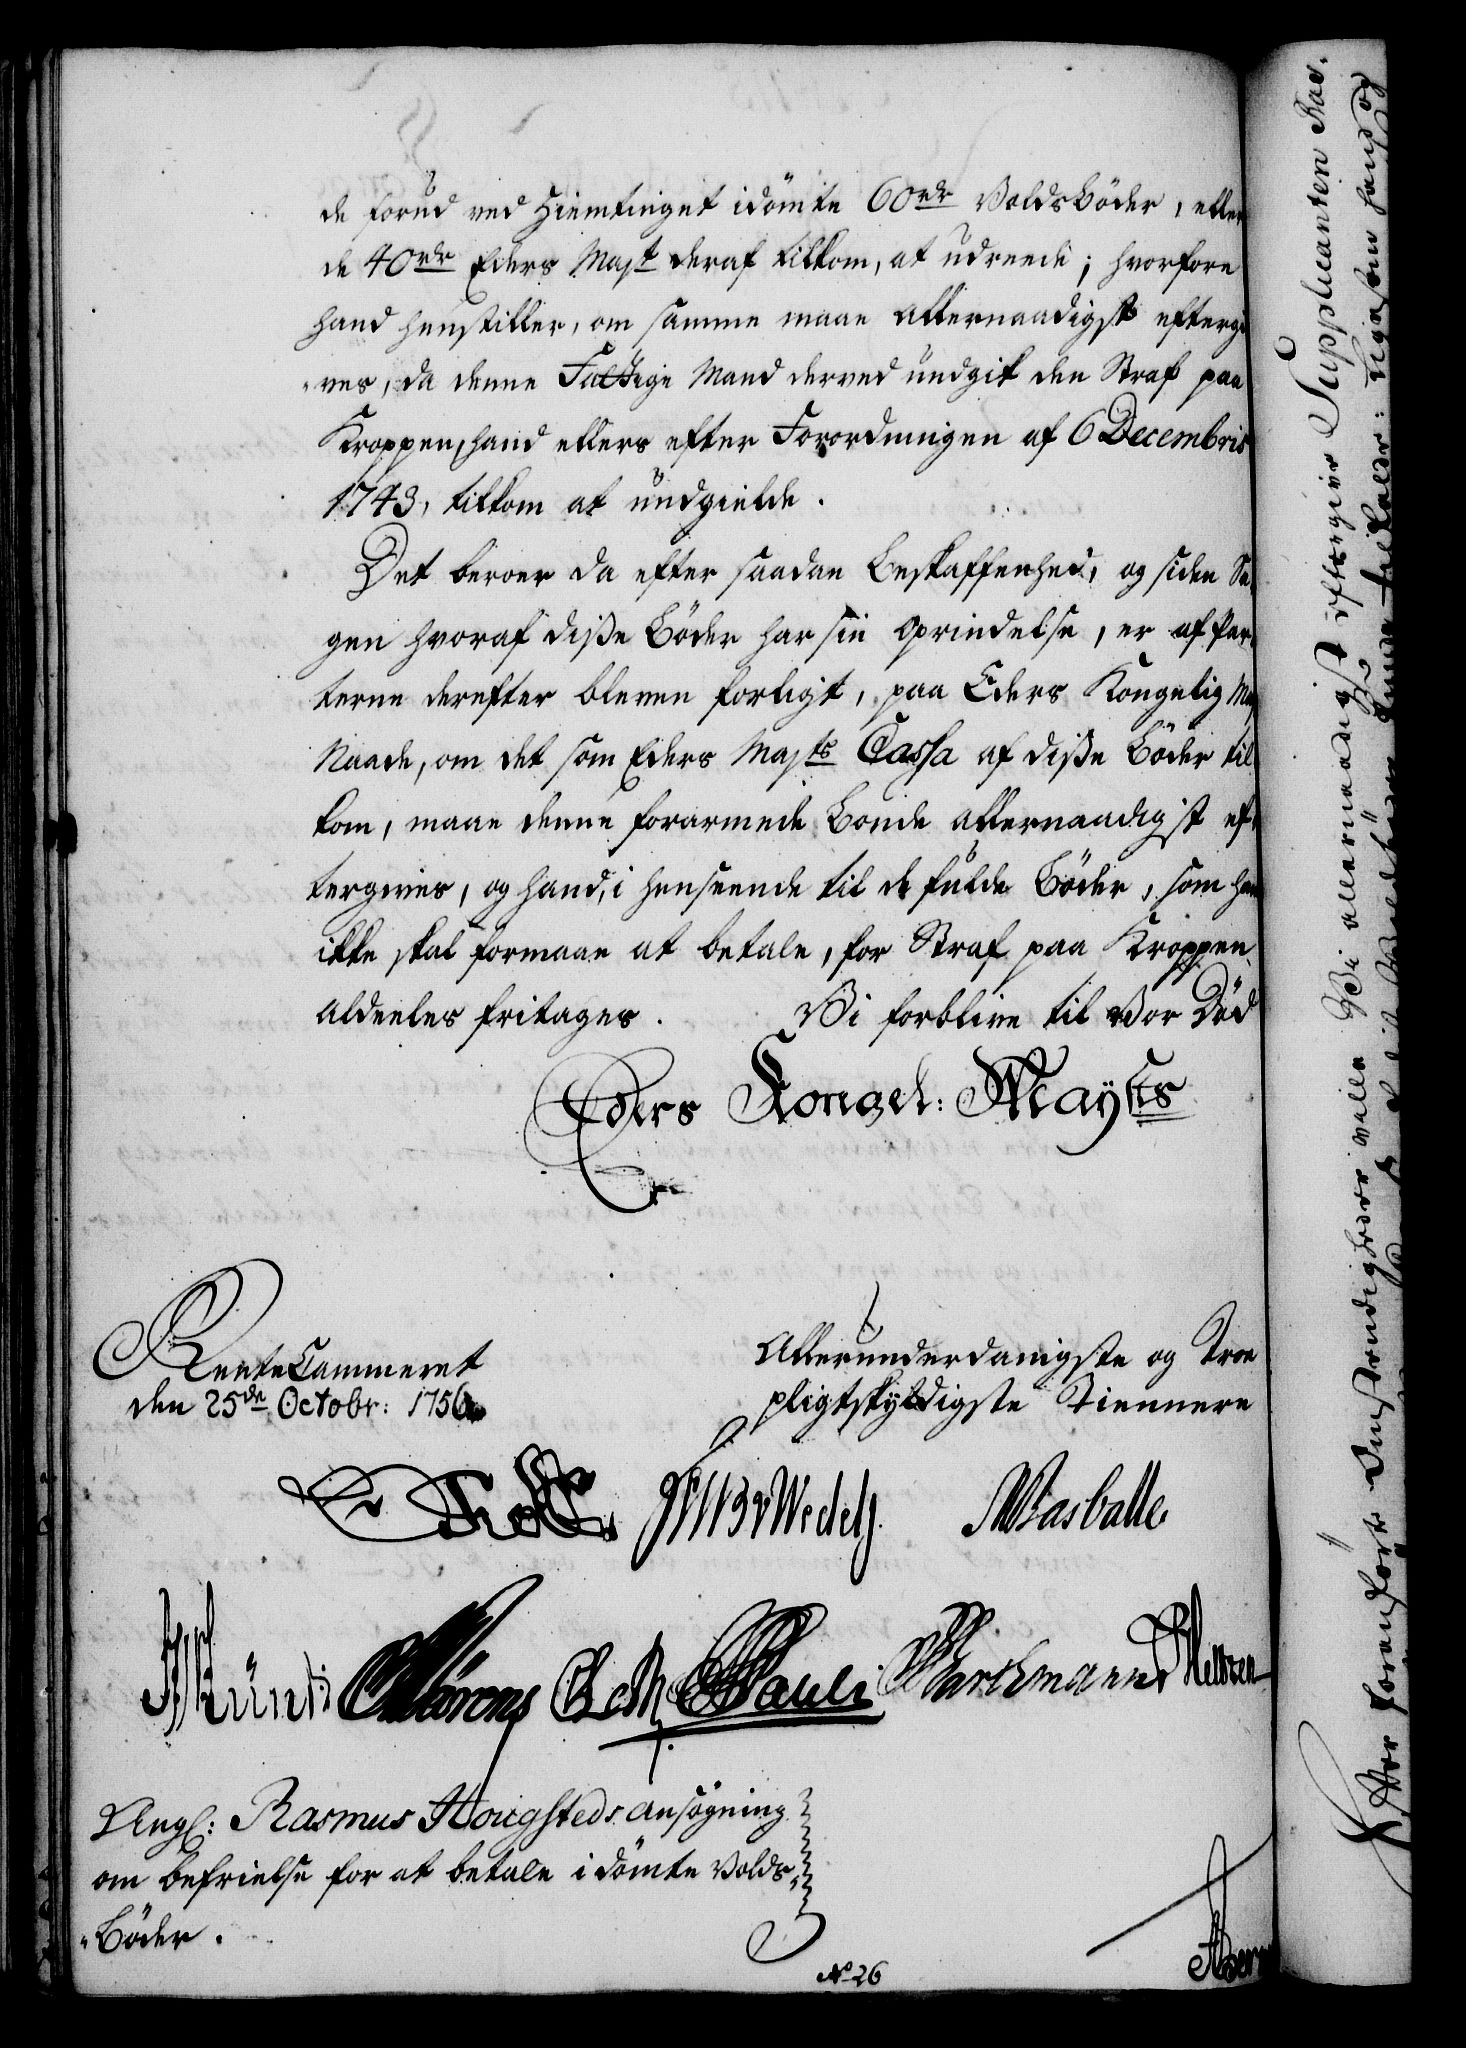 de forud ved Hiemtinget idömte 60 rdr Voldsböder, eller
de 40 rdr Eders Mayt deraf tilkom, at udreede; hvorfore
hand henstiller, om samme maae allernaadigst eftergi
ves, da denne Fattige Mand derved undgik den Straf paa
Kroppen, hand ellers efter Forordningen af 6 Decembris
1743, tilkom at undgielde.
Det beroer da efter saadan Beskaffenhed, og siden Sa,
gen hvoraf disse Böder har sin Oprindelse, er af Par,
terne derefter bleven forligt, paa Eders Kongelig May
Naade, om det som Eders Majts Cassa af disse Böder til
kom, maae denne forarmede Bonde allernaadigst ef,
tergives, og hand, i henseende til de fulde Böder, som han
ikke skal formaae at betale, for Straf paa Kroppen
aldeeles fritages. Vi forblive til vor Död
Eders Kongel: Mayts
RenteCammeret
den 25de Octobr: 1756
Allerunderdanigste og Troe
pligtskyldigste Tiennere
Wedels Wasballe
Pauli Barchmann
Ang: Rasmus Hougsteds ansögning
om befrielse for at betale idömte Volds,
Böder.
No 26
Efter foranförte Omstændigheder ville Vi allernaadigst eftergive Supplicanten Ras.